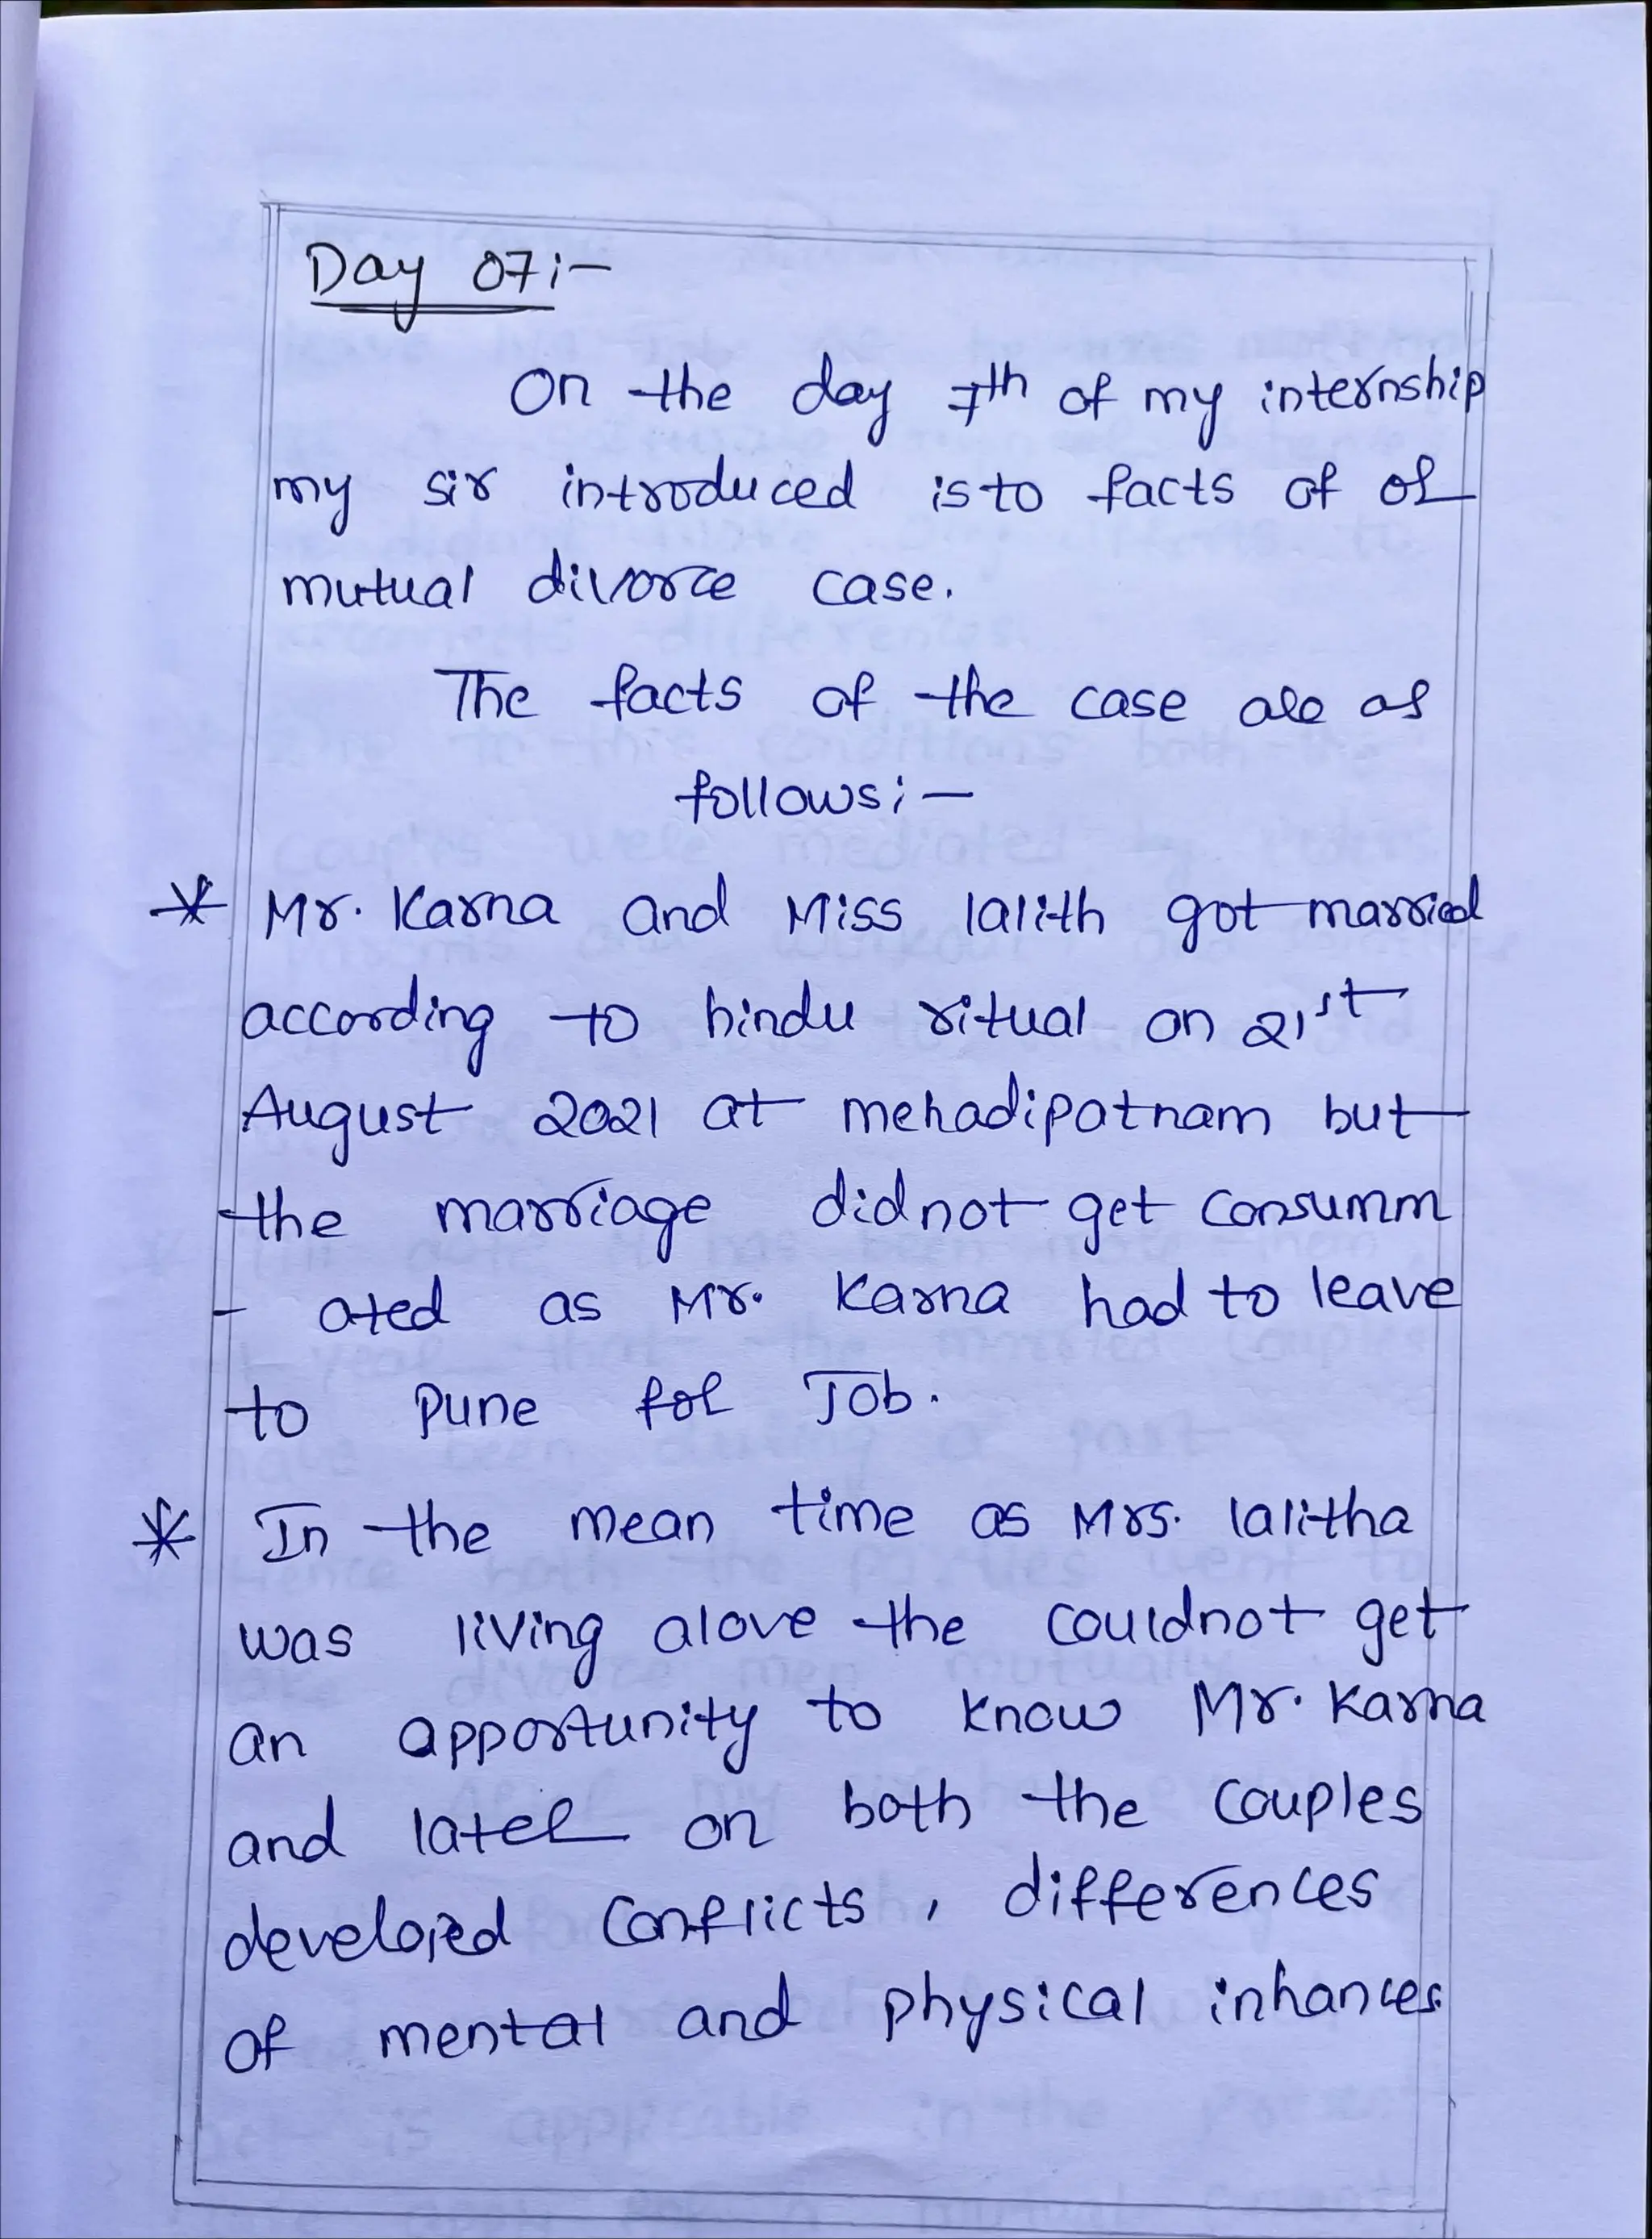 Day 07:-
On the day 7th of my internship
my sir introduced is to facts of of
mutual divorce case.
The facts of the case are as
follows:-
* Mr. Karna and Miss lalith got married
according to hindu ritual on 21st
August 2021 at mehadipatnam but
the marriage didnot get consumm
- ated as Mr. Karna had to leave
to Pune for Job.
* In the mean time as Mrs. lalitha
was living alove the couldnot get
an opportunity to know Mr. Karna
and later on both the couples
develoied conflicts, differences
of mental and physical inhances